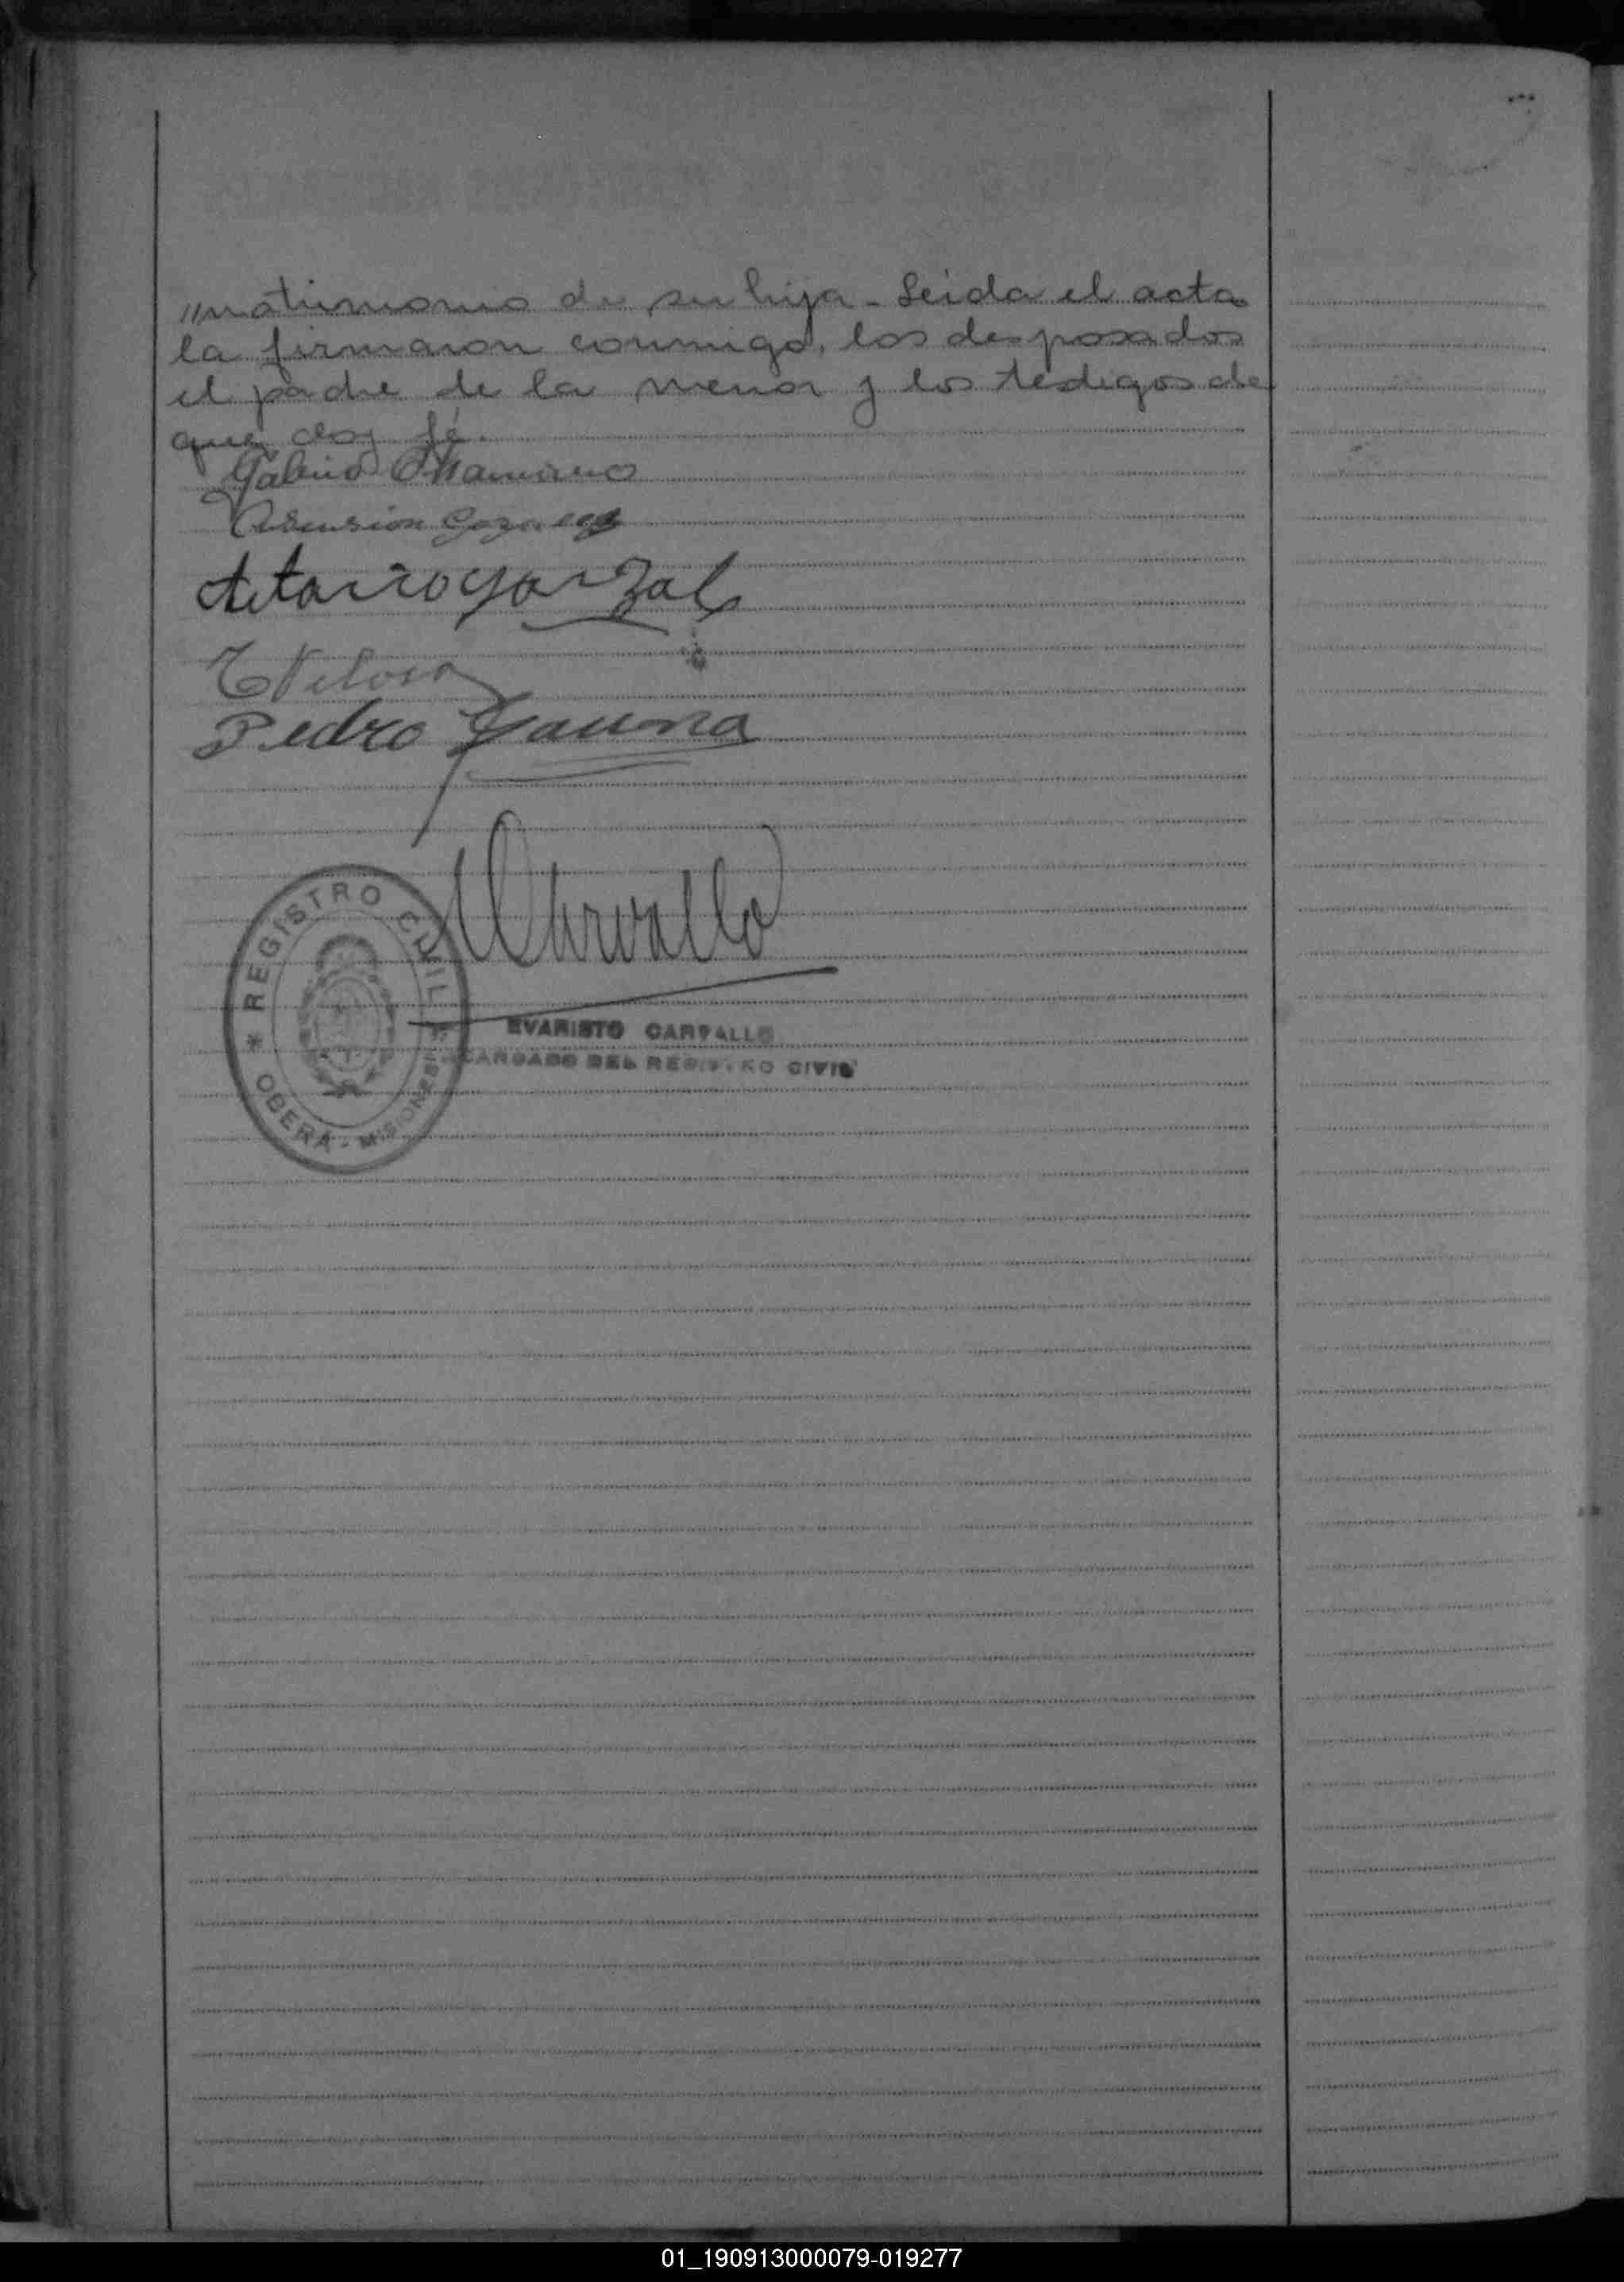 "matrimonio de su hija - Leida el acta
la firmaron conmigo, los desposados
el padre de la menor y los testigos de
que doy fé.
Gabino
Asension
Pedro Gauna
Carvallo
REGISTRO CIVIL
* OBERÁ - MISIONES *
EVARISTO CARVALLO
ENCARGADO DEL REGISTRO CIVIL
01_190913000079-019277